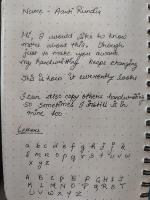 Name - Aarti Kundu
Hi, I would like to know
more about this, though
just to make you aware
my handwriting keeps changing
This is how it currently looks
I can also copy others handwriting
so sometimes I instill it in
mine too -
Letters
a b c d e f g h i j k
l m n o p q r s t u v w
x y z
A B C D E F G H I J
K L M N O P Q R S T
U V W X Y Z